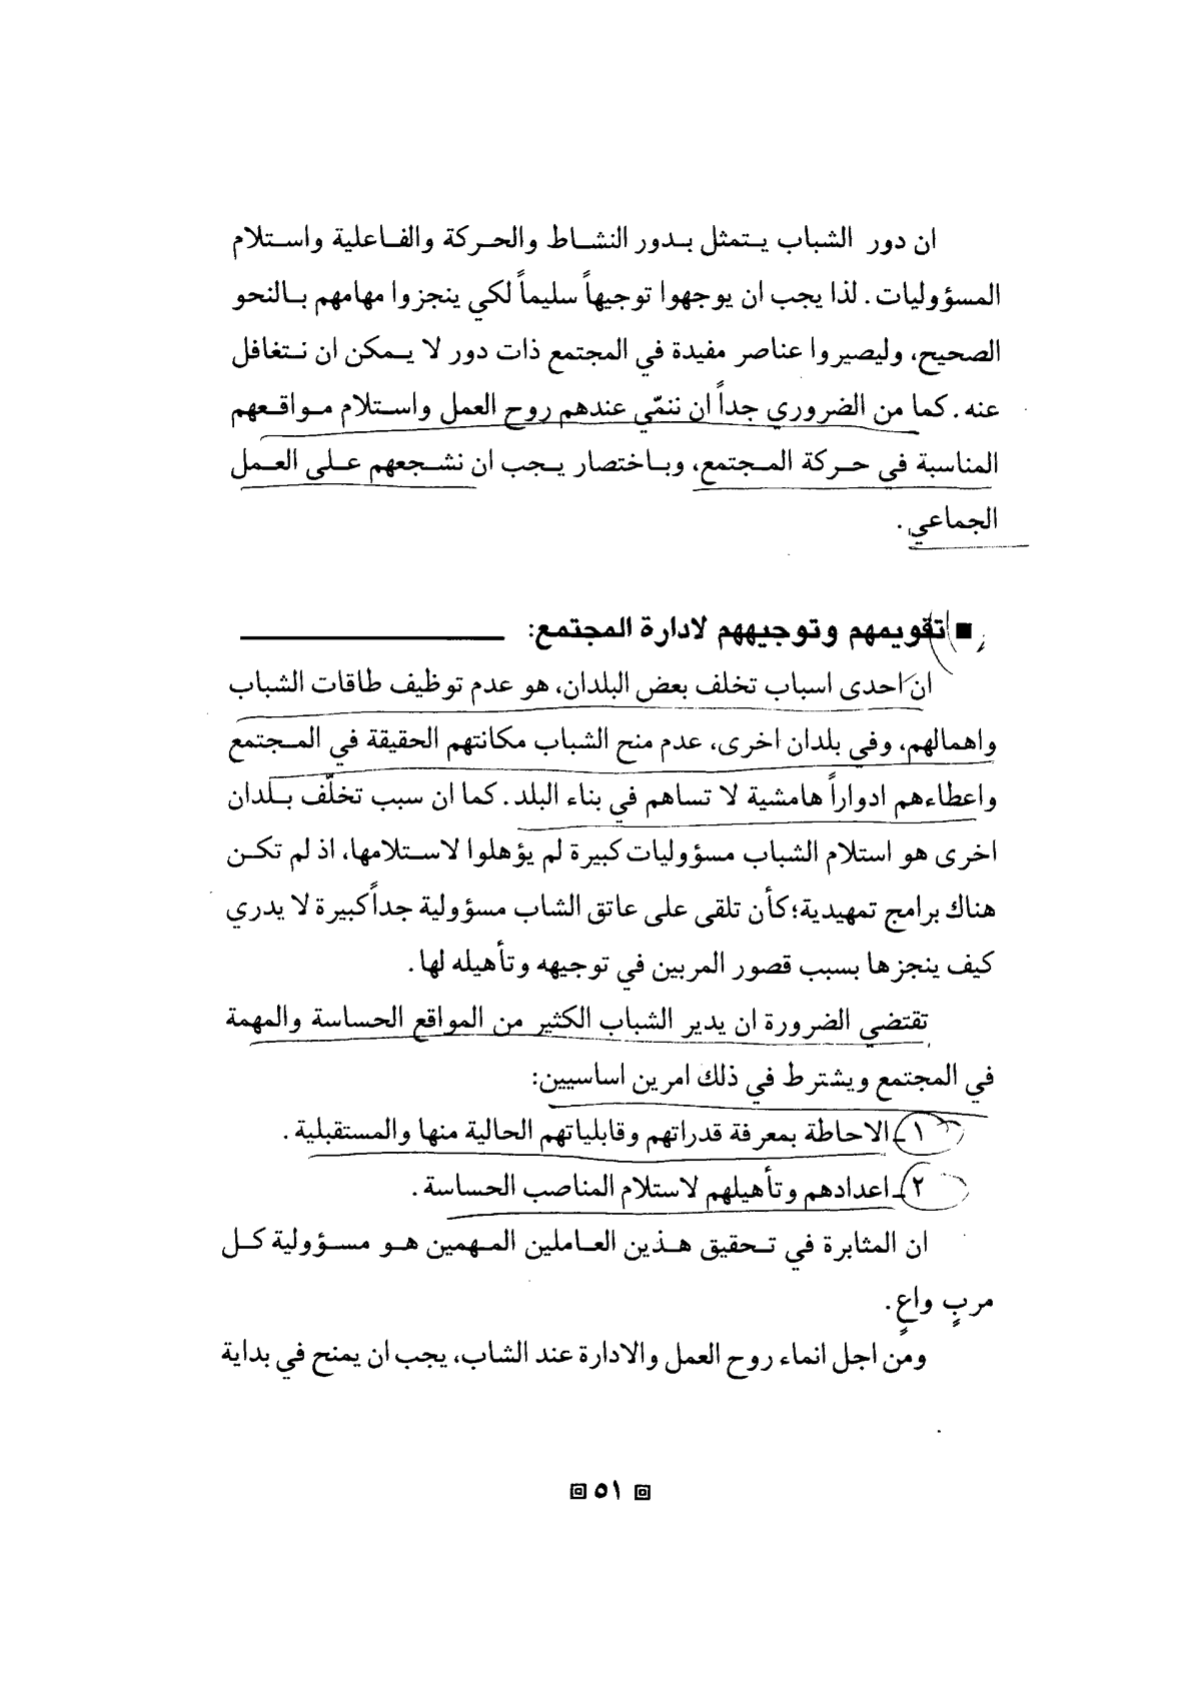 ان دور الشباب يتمثل بدور النشاط والحركة والفاعلية واستلام
المسؤوليات. لذا يجب ان يوجهوا توجيهاً سليماً لكي ينجزوا مهامهم بالنحو
الصحيح، وليصيروا عناصر مفيدة في المجتمع ذات دور لا يمكن ان نتغافل
عنه. كما من الضروري جداً ان ننمّي عندهم روح العمل واستلام مواقعهم
المناسبة في حركة المجتمع، وباختصار يجب ان نشجعهم على العمل
الجماعي.
■ تقويمهم وتوجيههم لادارة المجتمع:
ان احدى اسباب تخلف بعض البلدان، هو عدم توظيف طاقات الشباب
واهمالهم، وفي بلدان اخرى، عدم منح الشباب مكانتهم الحقيقة في المجتمع
واعطاءهم ادواراً هامشية لا تساهم في بناء البلد. كما ان سبب تخلّف بلدان
اخرى هو استلام الشباب مسؤوليات كبيرة لم يؤهلوا لاستلامها، اذ لم تكن
هناك برامج تمهيدية؛ كأن تلقى على عاتق الشاب مسؤولية جداً كبيرة لا يدري
كيف ينجزها بسبب قصور المربين في توجيهه وتأهيله لها.
تقتضي الضرورة ان يدير الشباب الكثير من المواقع الحساسة والمهمة
في المجتمع ويشترط في ذلك امرين اساسيين:
١ـ الاحاطة بمعرفة قدراتهم وقابلياتهم الحالية منها والمستقبلية.
٢ـ اعدادهم وتأهيلهم لاستلام المناصب الحساسة.
ان المثابرة في تحقيق هذين العاملين المهمين هو مسؤولية كل
مربٍ واعٍ.
ومن اجل انماء روح العمل والادارة عند الشاب، يجب ان يمنح في بداية
٥١